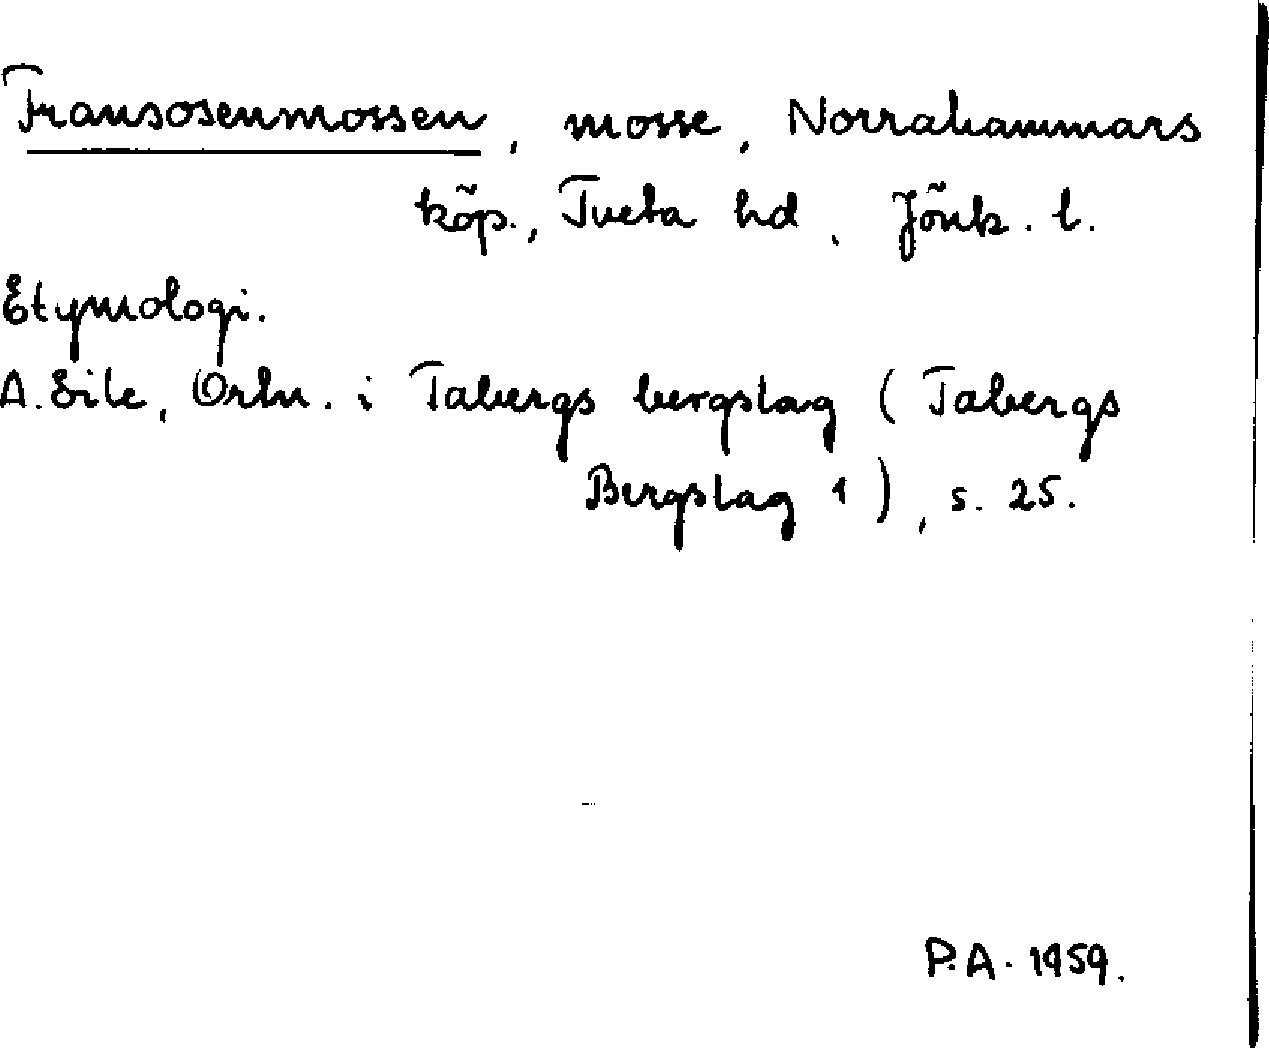 Fransosenmossen, mosse, Norrahammars
köp., Tveta hd, Jönk. l.
Etymologi.
A. Eile, Ortn. i Tabergs bergslag (Tabergs
Bergslag 1), s. 25.
P.A. 1959.